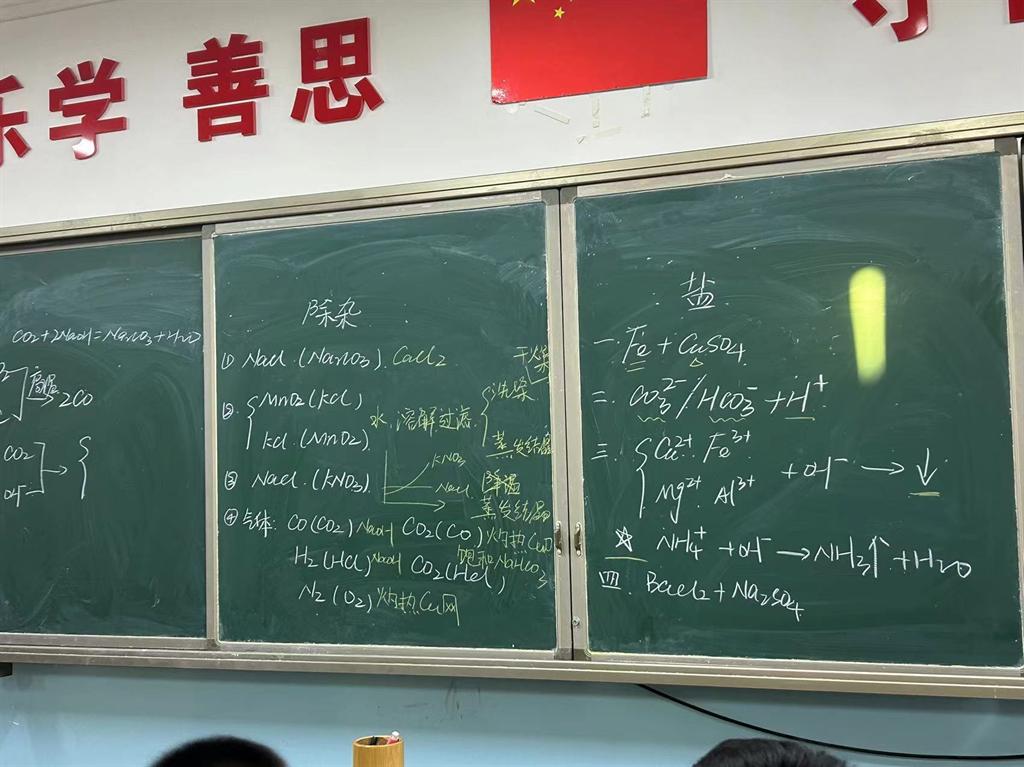 乐学 善思
CO2+2NaOH=Na2CO3+H2O
高温 2CO
CO2
OH-
除杂
① NaCl.(Na2CO3).CaCl2
② MnO2(KCl)
KCl.(MnO2).
水.溶解过滤
洗涤
干燥
蒸发结晶
③ NaCl.(KNO3).
KNO3
NaCl
降温
蒸发结晶
④气体: CO(CO2) NaOH CO2(CO) 灼热CuO
H2(HCl) NaOH CO2(HCl) 饱和NaHCO3
N2(O2) 灼热Cu网
盐
一. Fe + CuSO4
二. CO3^2-/HCO3^- + H^+
三. Cu^2+ Fe^3+
Mg^2+ Al^3+ + OH^- → ↓
☆ NH4^+ + OH^- → NH3↑ + H2O
四. BaCl2 + Na2SO4